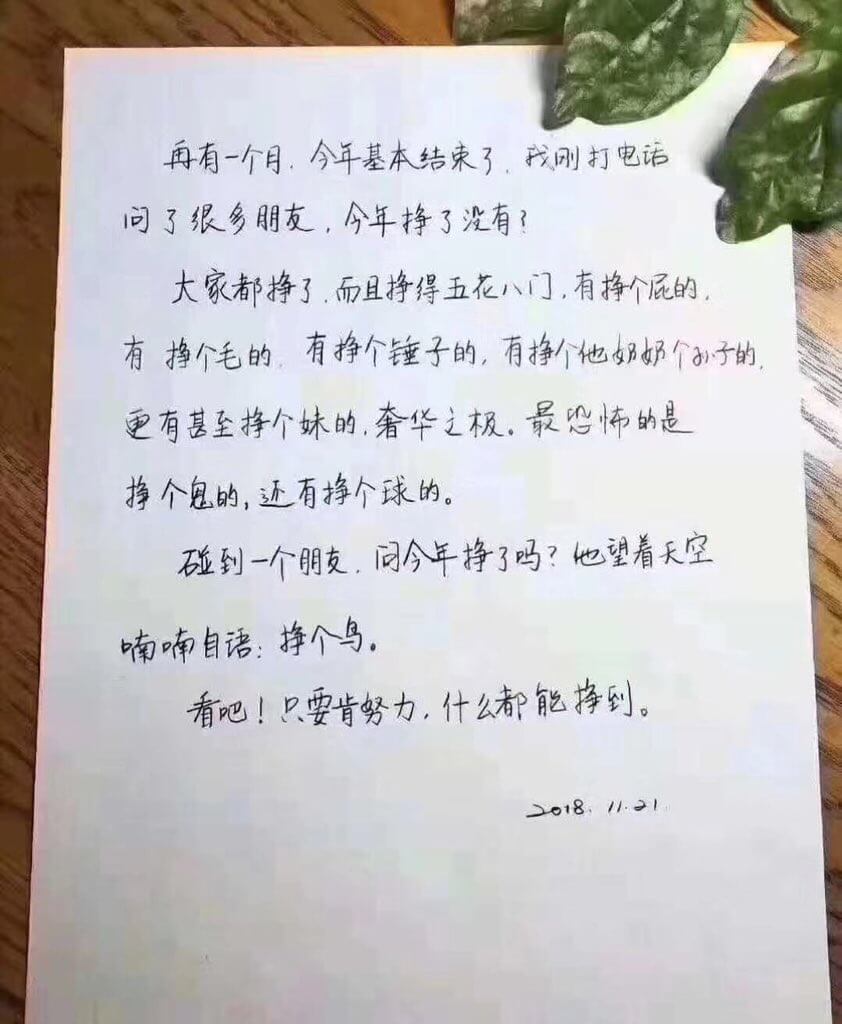 再有一个月. 今年基本结束了. 我刚打电话
问了很多朋友, 今年挣了没有?
大家都挣了, 而且挣得五花八门, 有挣个屁的,
有 挣个毛的, 有挣个锤子的, 有挣个他奶奶个孙子的,
更有甚至挣个妹的, 奢华之极。最恐怖的是
挣个鬼的, 还有挣个球的。
碰到一个朋友, 问今年挣了吗? 他望着天空
喃喃自语: 挣个鸟。
看吧! 只要肯努力, 什么都能挣到。
2018. 11. 21.